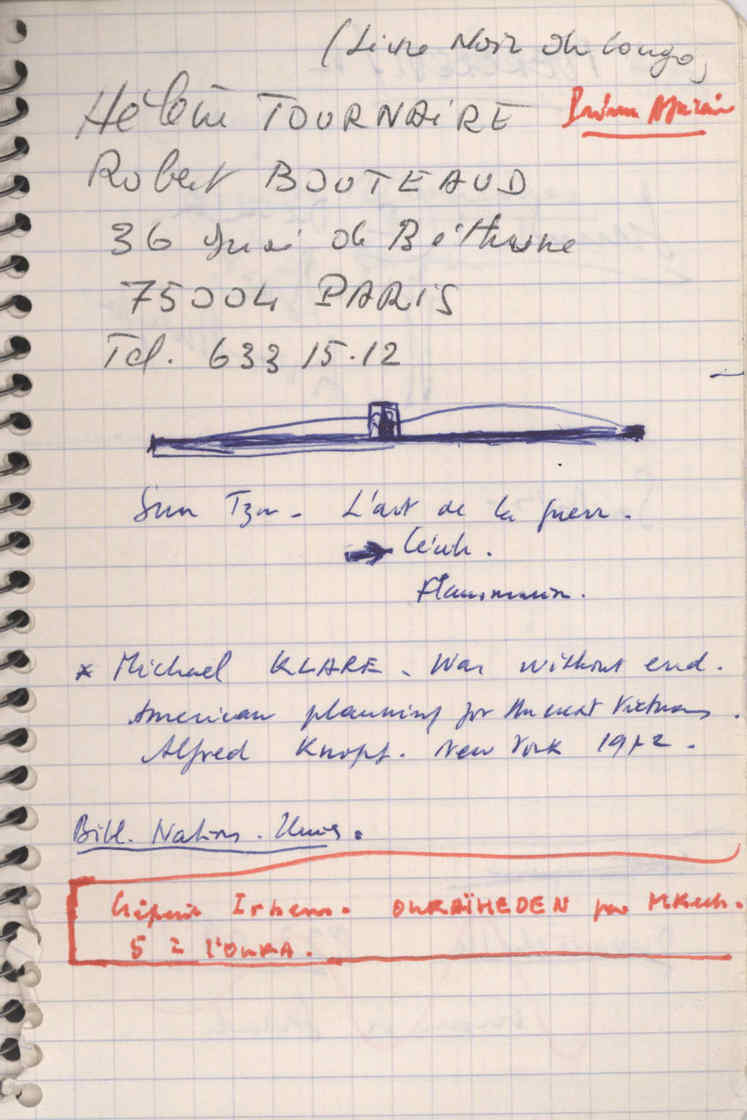 (Livre Noir du Congo)
Hélène TOURNAIRE
Robert BOUTEAUD
36 Quai de Béthune
75004 PARIS
Tel. 633 15.12
Sun Tzu - L'art de la guerre.
Flammarion.
* Michael KLARE - War without end.
American planning for the next Vietnams.
Alfred Knopf. New York 1972.
Bibl. Nations. Unies.
OURAÏHEDEN par
5 2 l'OURA.